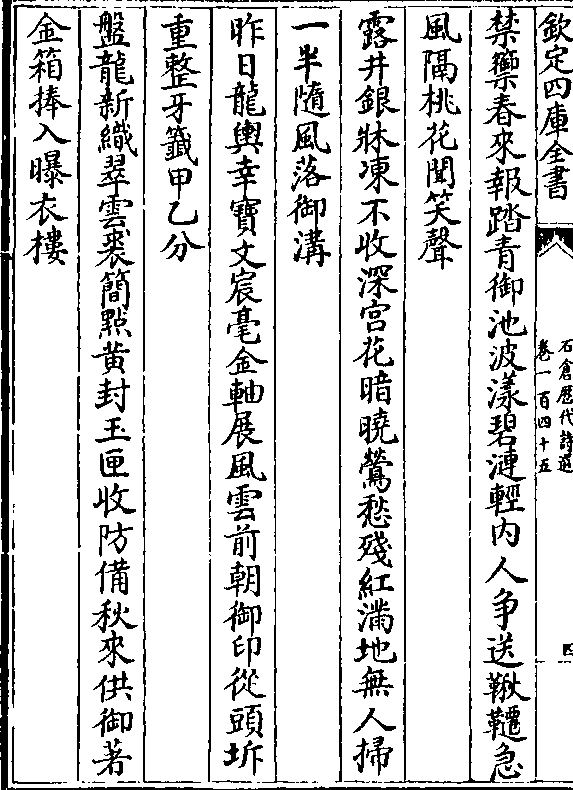 欽定四庫全書
石倉歴代詩選
卷一百四十五
四
禁籞春來報踏青御池波漾碧漣輕内人争送鞦韆急
風隔桃花聞笑聲
露井銀牀凍不收深宫花暗曉鶯愁殘紅滿地無人掃
一半隨風落御溝
昨日龍輿幸寶文宸毫金軸展風雲前朝御印從頭坼
重整牙籤甲乙分
盤龍新織翠雲裘簡㸃黄封玉匣收防備秋來供御著
金箱捧入曝衣樓